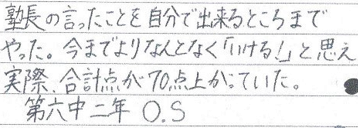 塾長の言ったことを自分で出来るところまで
やった。今までよりなんとなく「いける!」と思え
実際、合計点が70点上がっていた。
第六中二年 O.S